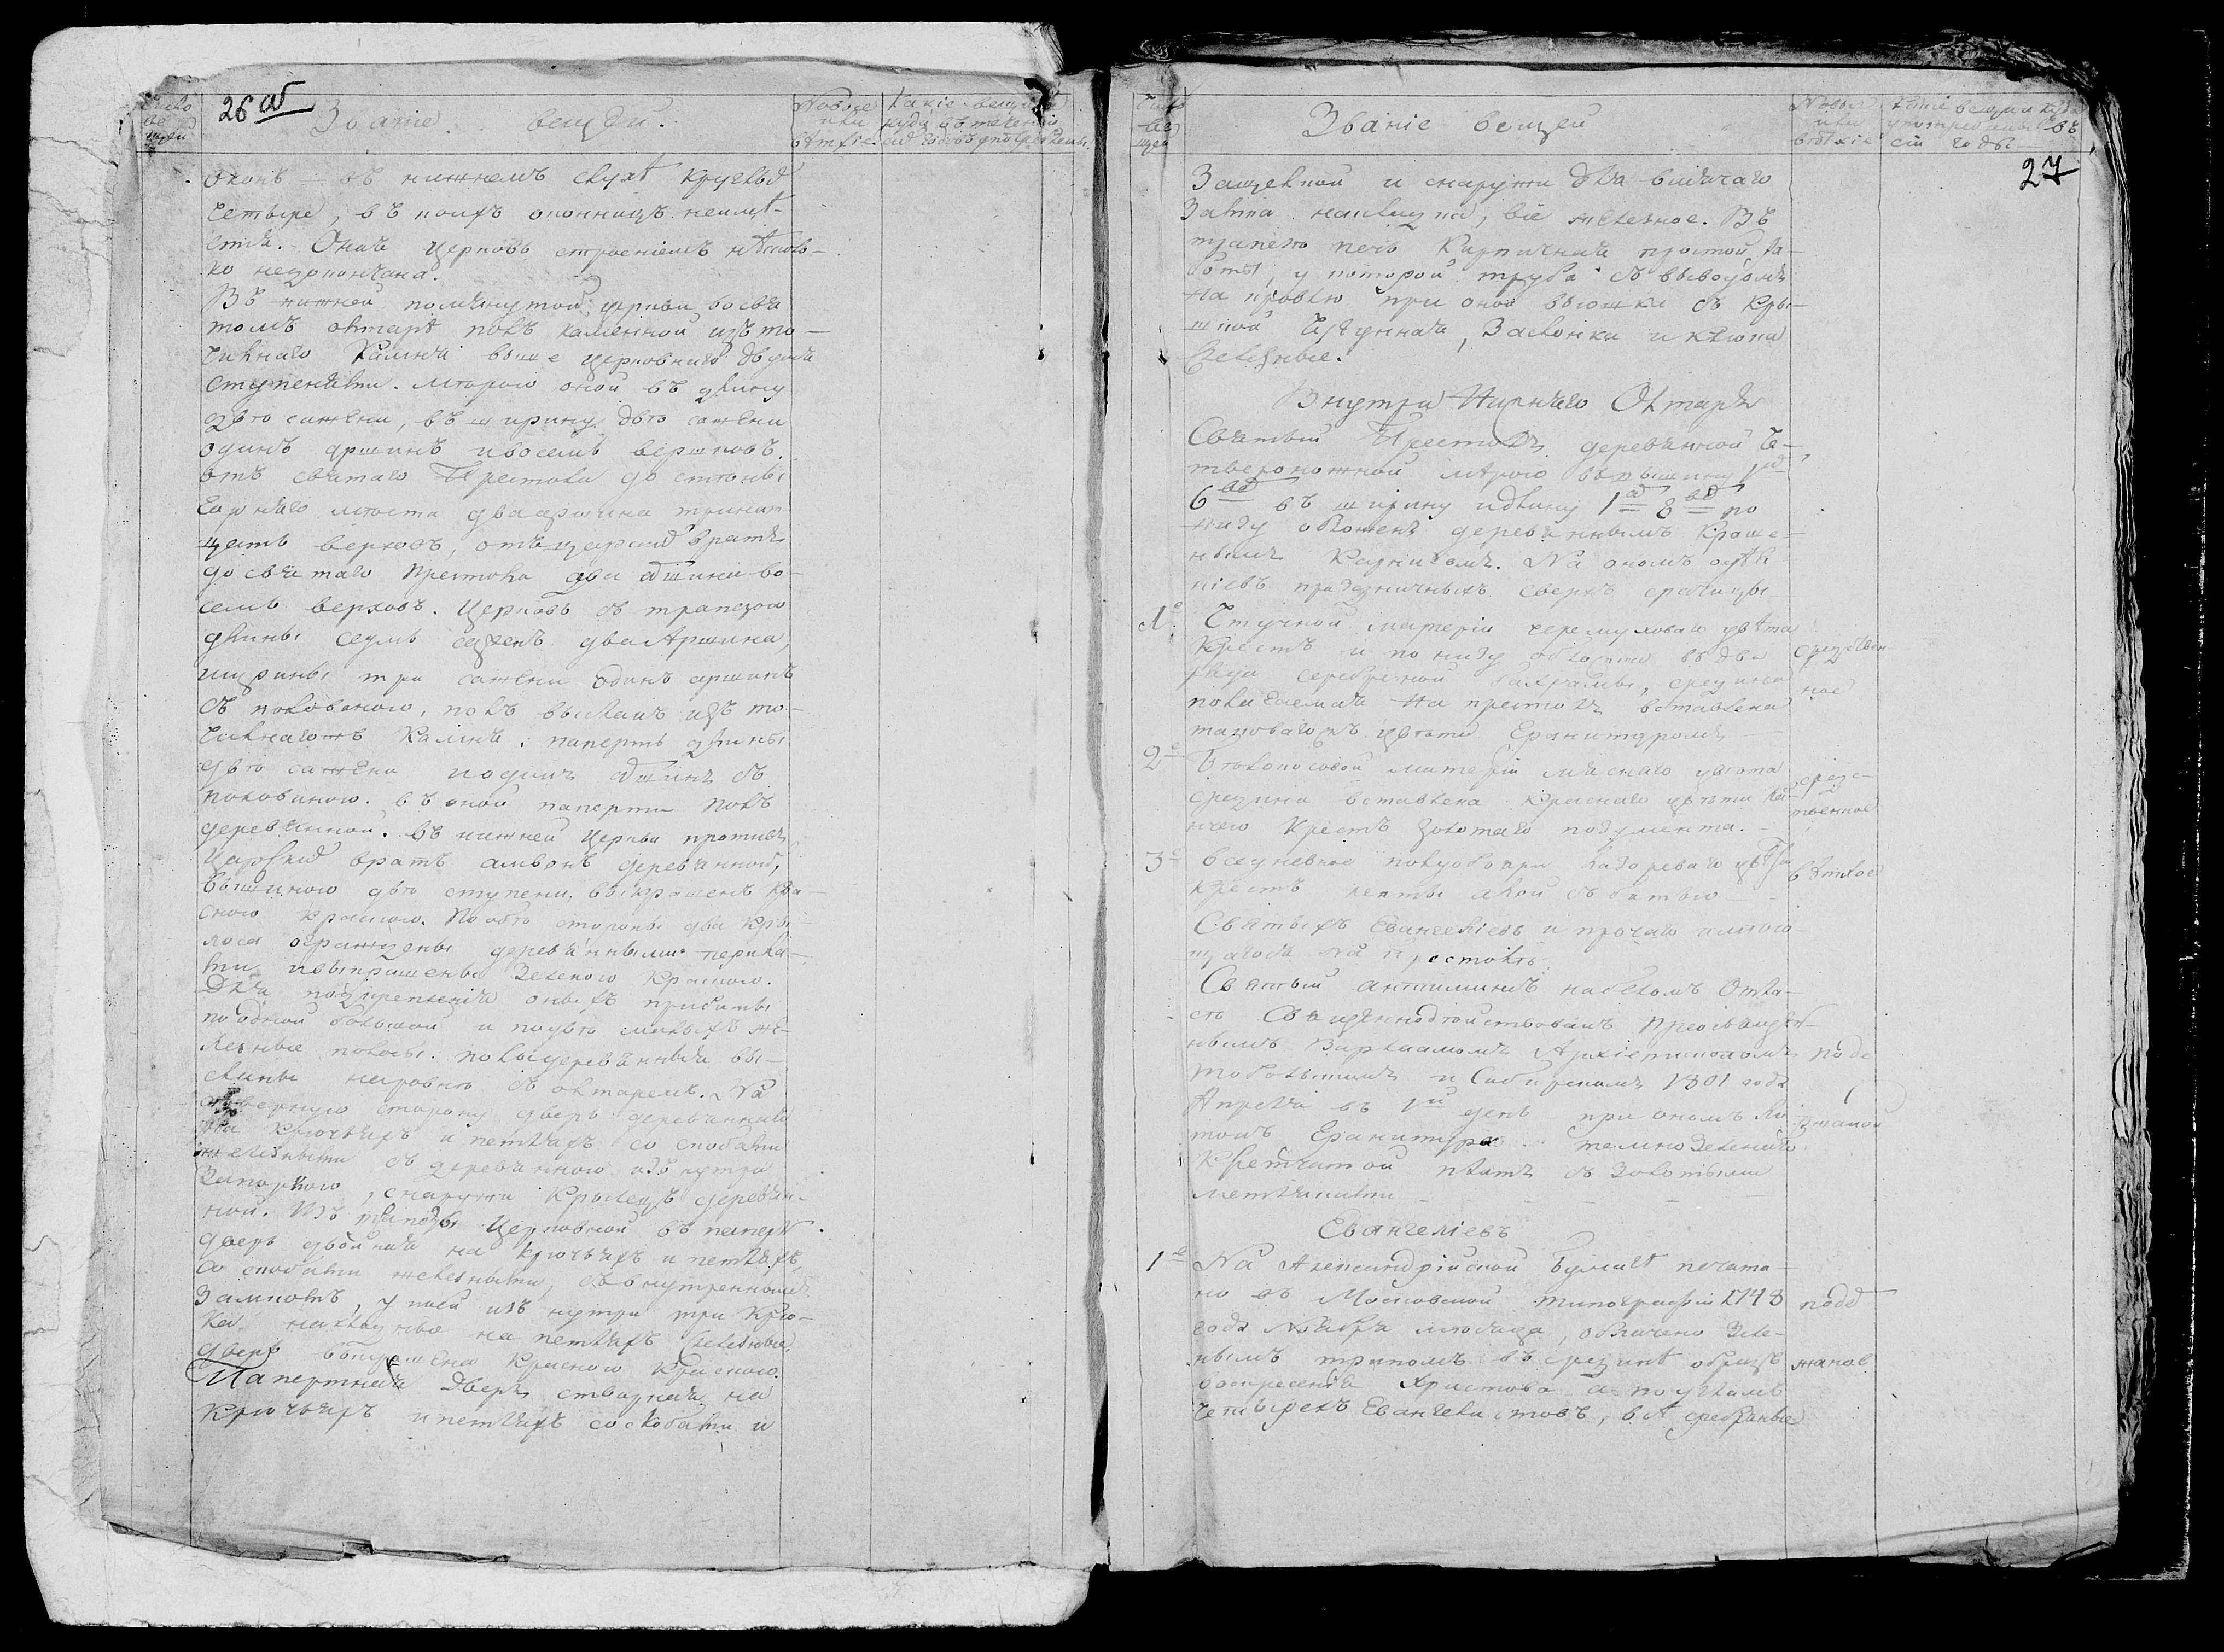 26 об
Число
ве
щей
Званіе вещей.
Новые
или
ветхіе.
Какіе вещи и
куда въ теченіи
сихъ годовъ употреблены.
оконъ въ нижнемъ слухѣ круглыхъ
четыре, въ коихъ оконницъ неимѣ-
етца. Оная церковь строеніемъ нѣсколь-
ко недокончана.
Въ нижней помянутой церкви восвя
томъ олтарѣ полъ каменной изъ то-
чильнаго камня выше церковнаго двумя
ступенями. мѣрою оной въ длину
двѣ сажени, въ ширину двѣ сажени
одинъ аршинъ ивосемь вершковъ.
отъ святаго Престола до стѣны
Горняго мѣста двааршина тринат-
цать верховъ, отъ царскихъ вратъ
до святаго престола два аршина во-
семь верховъ. Церковь съ трапезою
длины семь саженъ два Аршина,
ширины три сажени одинъ аршинъ
съ половиною, полъ высланъ изъ то-
чильнаго камня; паперть длины
двѣ сажени иодинъ аршинъ съ
половиною. въ оной паперти полъ
деревянной. въ нижней церкви противъ
царскихъ вратъ амвонъ деревянной,
вышиною двѣ ступени, выкрашенъ кра-
сною краскою. По обѣ стороны два кры-
лоса ограждены деревянными перила-
ми ивыкрашены зеленою краскою.
Для подкрепленія оныхъ прибиты
поодной большой и подвѣ малыхъ же-
лезные полосы. полыдеревянныя вы-
сланы наровнѣ съ олтаремъ. На
северную сторону дверь деревянная
на крючьяхъ и петляхъ со скобами
железными съ деревянною изънутри
запоркою, снаружи крылецъ деревян-
ной. Изъ трапезы церковной въ паперть
дверь двойная на крючьяхъ и петляхъ
со скобами железными, съ внутреннымъ
замкомъ, у коей изъ нутри три крю-
ка накладные на петляхъ железные
дверь выкрашена красною краскою.
Папертная дверь створная на
крючьяхъ ипетляхъ соскобами и
Число
ве
щей
Званіе вещей
Новые
или
ветхіе
Какіе вещи и куда
употреблены въ
сіи годы
27
Защелкой и снаружи два висячаго
Замка накладка, все железное. Въ
трапезѣ печь кирпичная простой ра-
боты, у которой труба съ выводомъ
на кровлю при оной вьюшка съ кры-
шкой чугунная, Заслонка и клюка
железные.
Внутри Нижняго Олтаря
Святый Престолъ деревянной че-
твероножной мѣрою въ вышину 1 ар
6 вер въ ширину идлину 1 ар 8 вер по
низу обложенъ деревяннымъ краше-
нымъ карнизомъ. На ономъ одѣя
ніевъ праздничныхъ сверхъ срачицы
1е Стучной матеріи черемуховаго цвѣта
крестъ и по низу обложено въ два
ряда серебреной бахрамы, средина
полагаемая на престолъ вставлена
таковагожъ цвѣта Гранитуромъ
средствен
ное
2е Бѣлокосовой матеріи мяснаго цвѣта
средина вставлена краснаго цвѣта ка
нчею крестъ золотаго позумента.
средс-
твенное
3е вседневное полуобъяри лазореваго цвѣта
крестъ ленты алой съ битью
ветхое
Святыхъ Евангеліевъ и прочаго имѣю
щагося на престолѣ
Святый антиминсъ набеломъ Отла-
сѣ Священнодѣйствованъ Преосвященъ
нымъ Варлаамомъ Архіепископомъ
Тобольскимъ и Сибирскимъ 1801 года
Апреля въ 1й день при ономъ ли
тонъ Гранитура темнозеленаго
Клетчатой платъ съ Золотыми
метлчками
подъ
ржаной
Евангеліевъ
1е На Александрійской бумагѣ печата-
но въ Московской типографіи 1748
года Ноября месяца, оболочено зеле-
нымъ трипомъ въ срединѣ образъ
воскресенія Христова а поугламъ
четырехъ Евангелистовъ, всѣ сребряные
подд
жаное